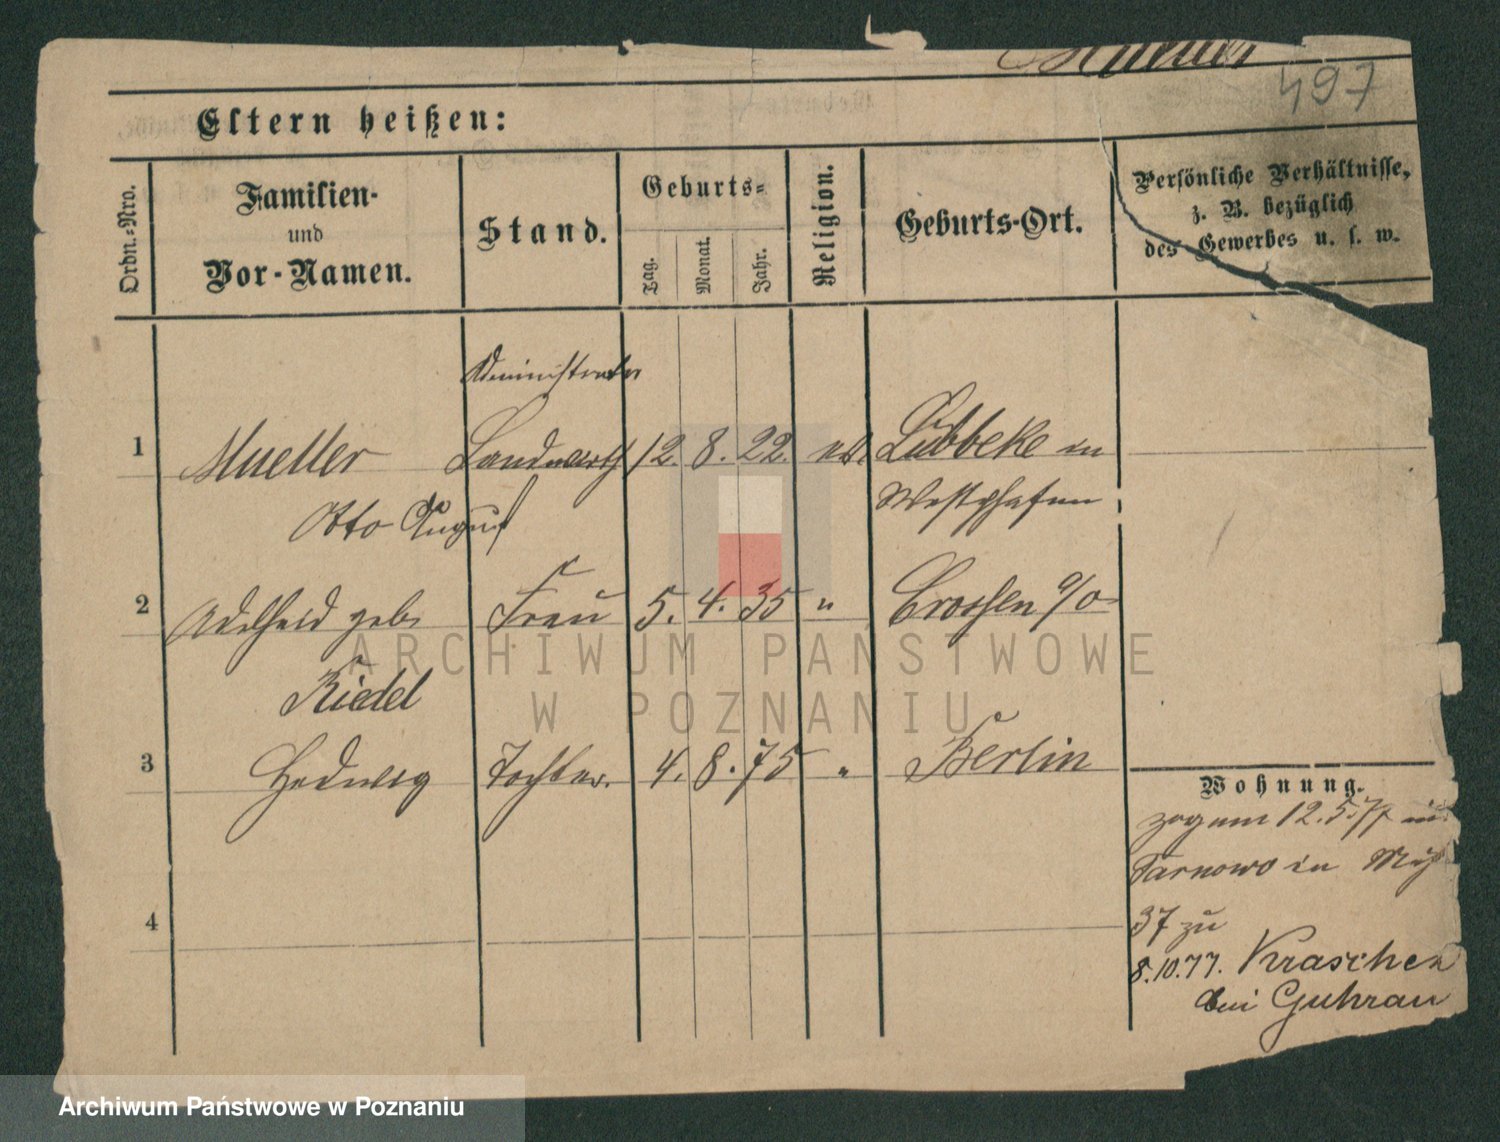 Mueller
497
Eltern heißen:
Ordn.-Nro.
Familien-
und
Vor-Namen.
Stand.
Geburts-
Tag.
Monat.
Jahr.
Religion.
Geburts-Ort.
Persönliche Verhältnisse,
z. B. bezüglich
des Gewerbes u. s. w.
Administrator
1 Mueller Landwirth 12. 8. 22. Lübbeke in
Otto August Westphalen
2 Adelheid geb. Frau 5. 4. 35 " Crossen a/O
Riedel
3 Hedwig Tochter. 4. 8. 75 " Berlin
4
Wohnung.
12.5.77
Tarnowo in
37 zu
8.10.77. Kraschen
bei Guhrau
ARCHIWUM PAŃSTWOWE
W POZNANIU
Archiwum Państwowe w Poznaniu